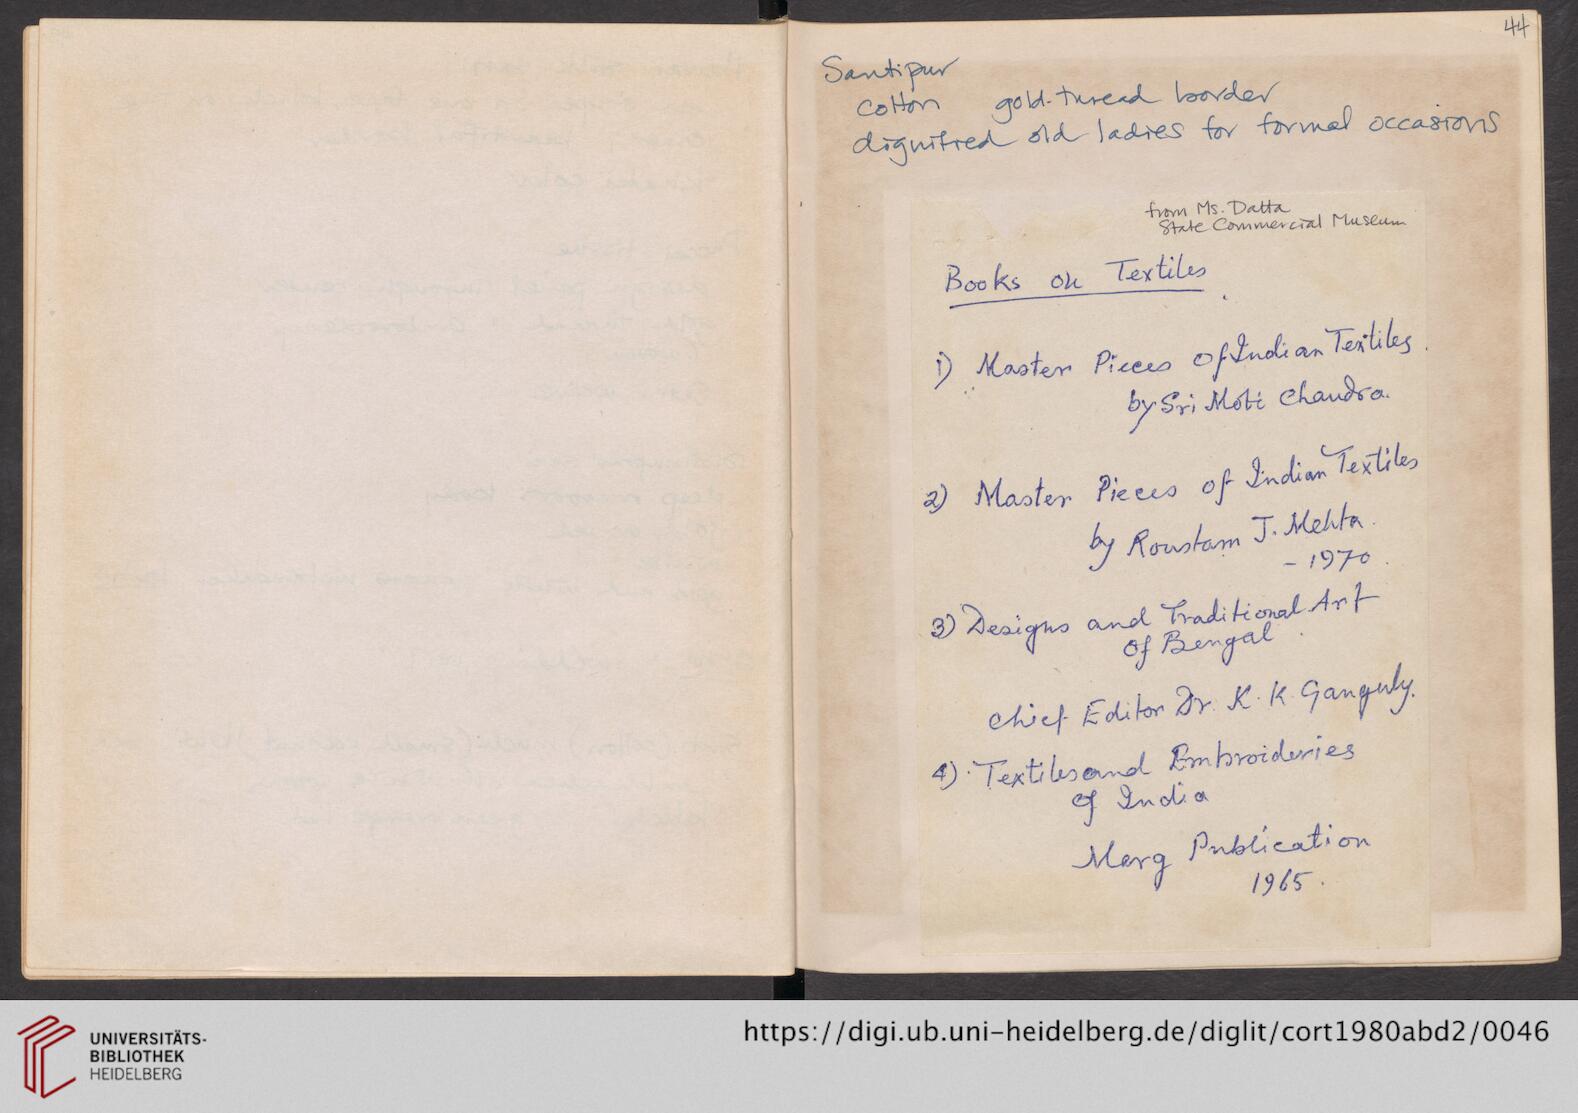 44
Santipur
cotton gold-thread border
dignified old ladies for formal occasions
from Ms. Datta
State Commercial Museum
Books on Textiles
1) Master Pieces of Indian Textiles.
by Sri Moti Chandra.
2) Master Pieces of Indian Textiles
by Roustam J. Mehta.
- 1970.
3) Designs and Traditional Art
of Bengal.
Chief Editor Dr. K. K. Ganguly.
4) Textiles and Embroideries
of India
Marg Publication
1965.
UNIVERSITÄTS-
BIBLIOTHEK
HEIDELBERG
https://digi.ub.uni-heidelberg.de/diglit/cort1980abd2/0046